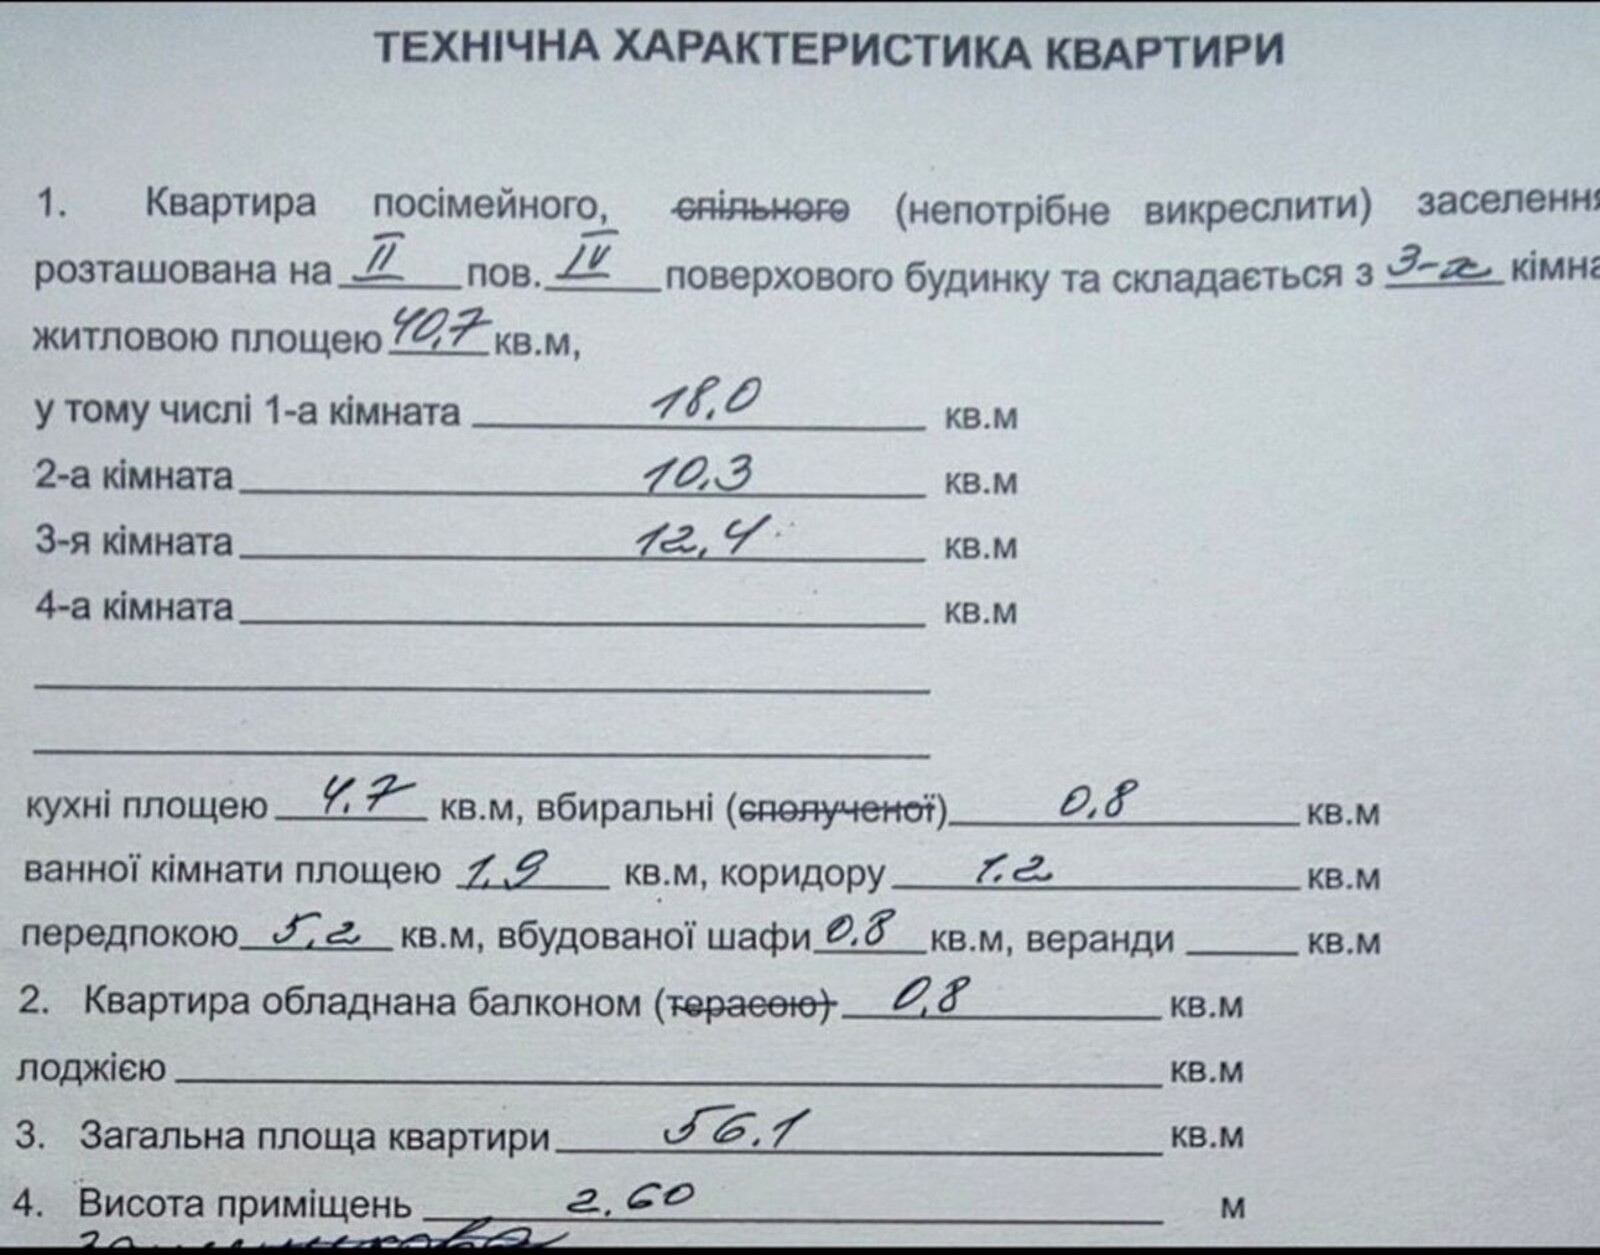 ТЕХНІЧНА ХАРАКТЕРИСТИКА КВАРТИРИ
1. Квартира посімейного, спільного (непотрібне викреслити) заселення
розташована на II пов. IV поверхового будинку та складається з 3-х кімна
житловою площею 40,7 кв.м,
у тому числі 1-а кімната 18,0 кв.м
2-а кімната 10,3 кв.м
3-я кімната 12,4 кв.м
4-а кімната кв.м
кухні площею 4,7 кв.м, вбиральні (сполученої) 0,8 кв.м
ванної кімнати площею 1,9 кв.м, коридору 1.2 кв.м
передпокою 5,2 кв.м, вбудованої шафи 0,8 кв.м, веранди кв.м
2. Квартира обладнана балконом (терасою) 0,8 кв.м
лоджією кв.м
3. Загальна площа квартири 56.1 кв.м
4. Висота приміщень 2.60 м